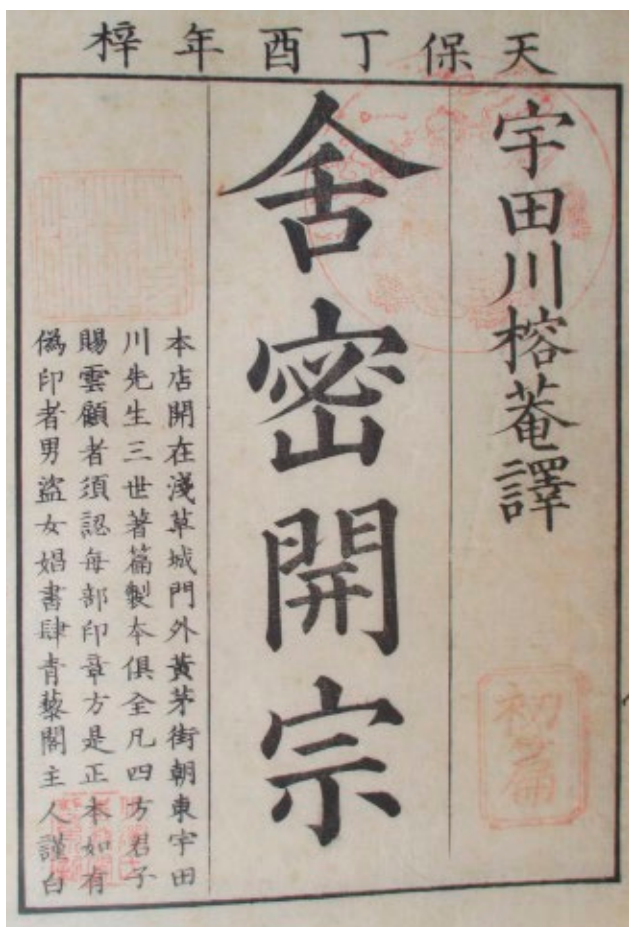 天保丁酉年梓
宇田川榕菴譯
舎密開宗
初篇
本店開在淺草城門外黃茅街朝東宇田
川先生三世著篇製本俱全凡四方君子
賜雲顧者須認每部印章方是正本如有
偽印者男盜女娼書肆青藜閣主人謹白